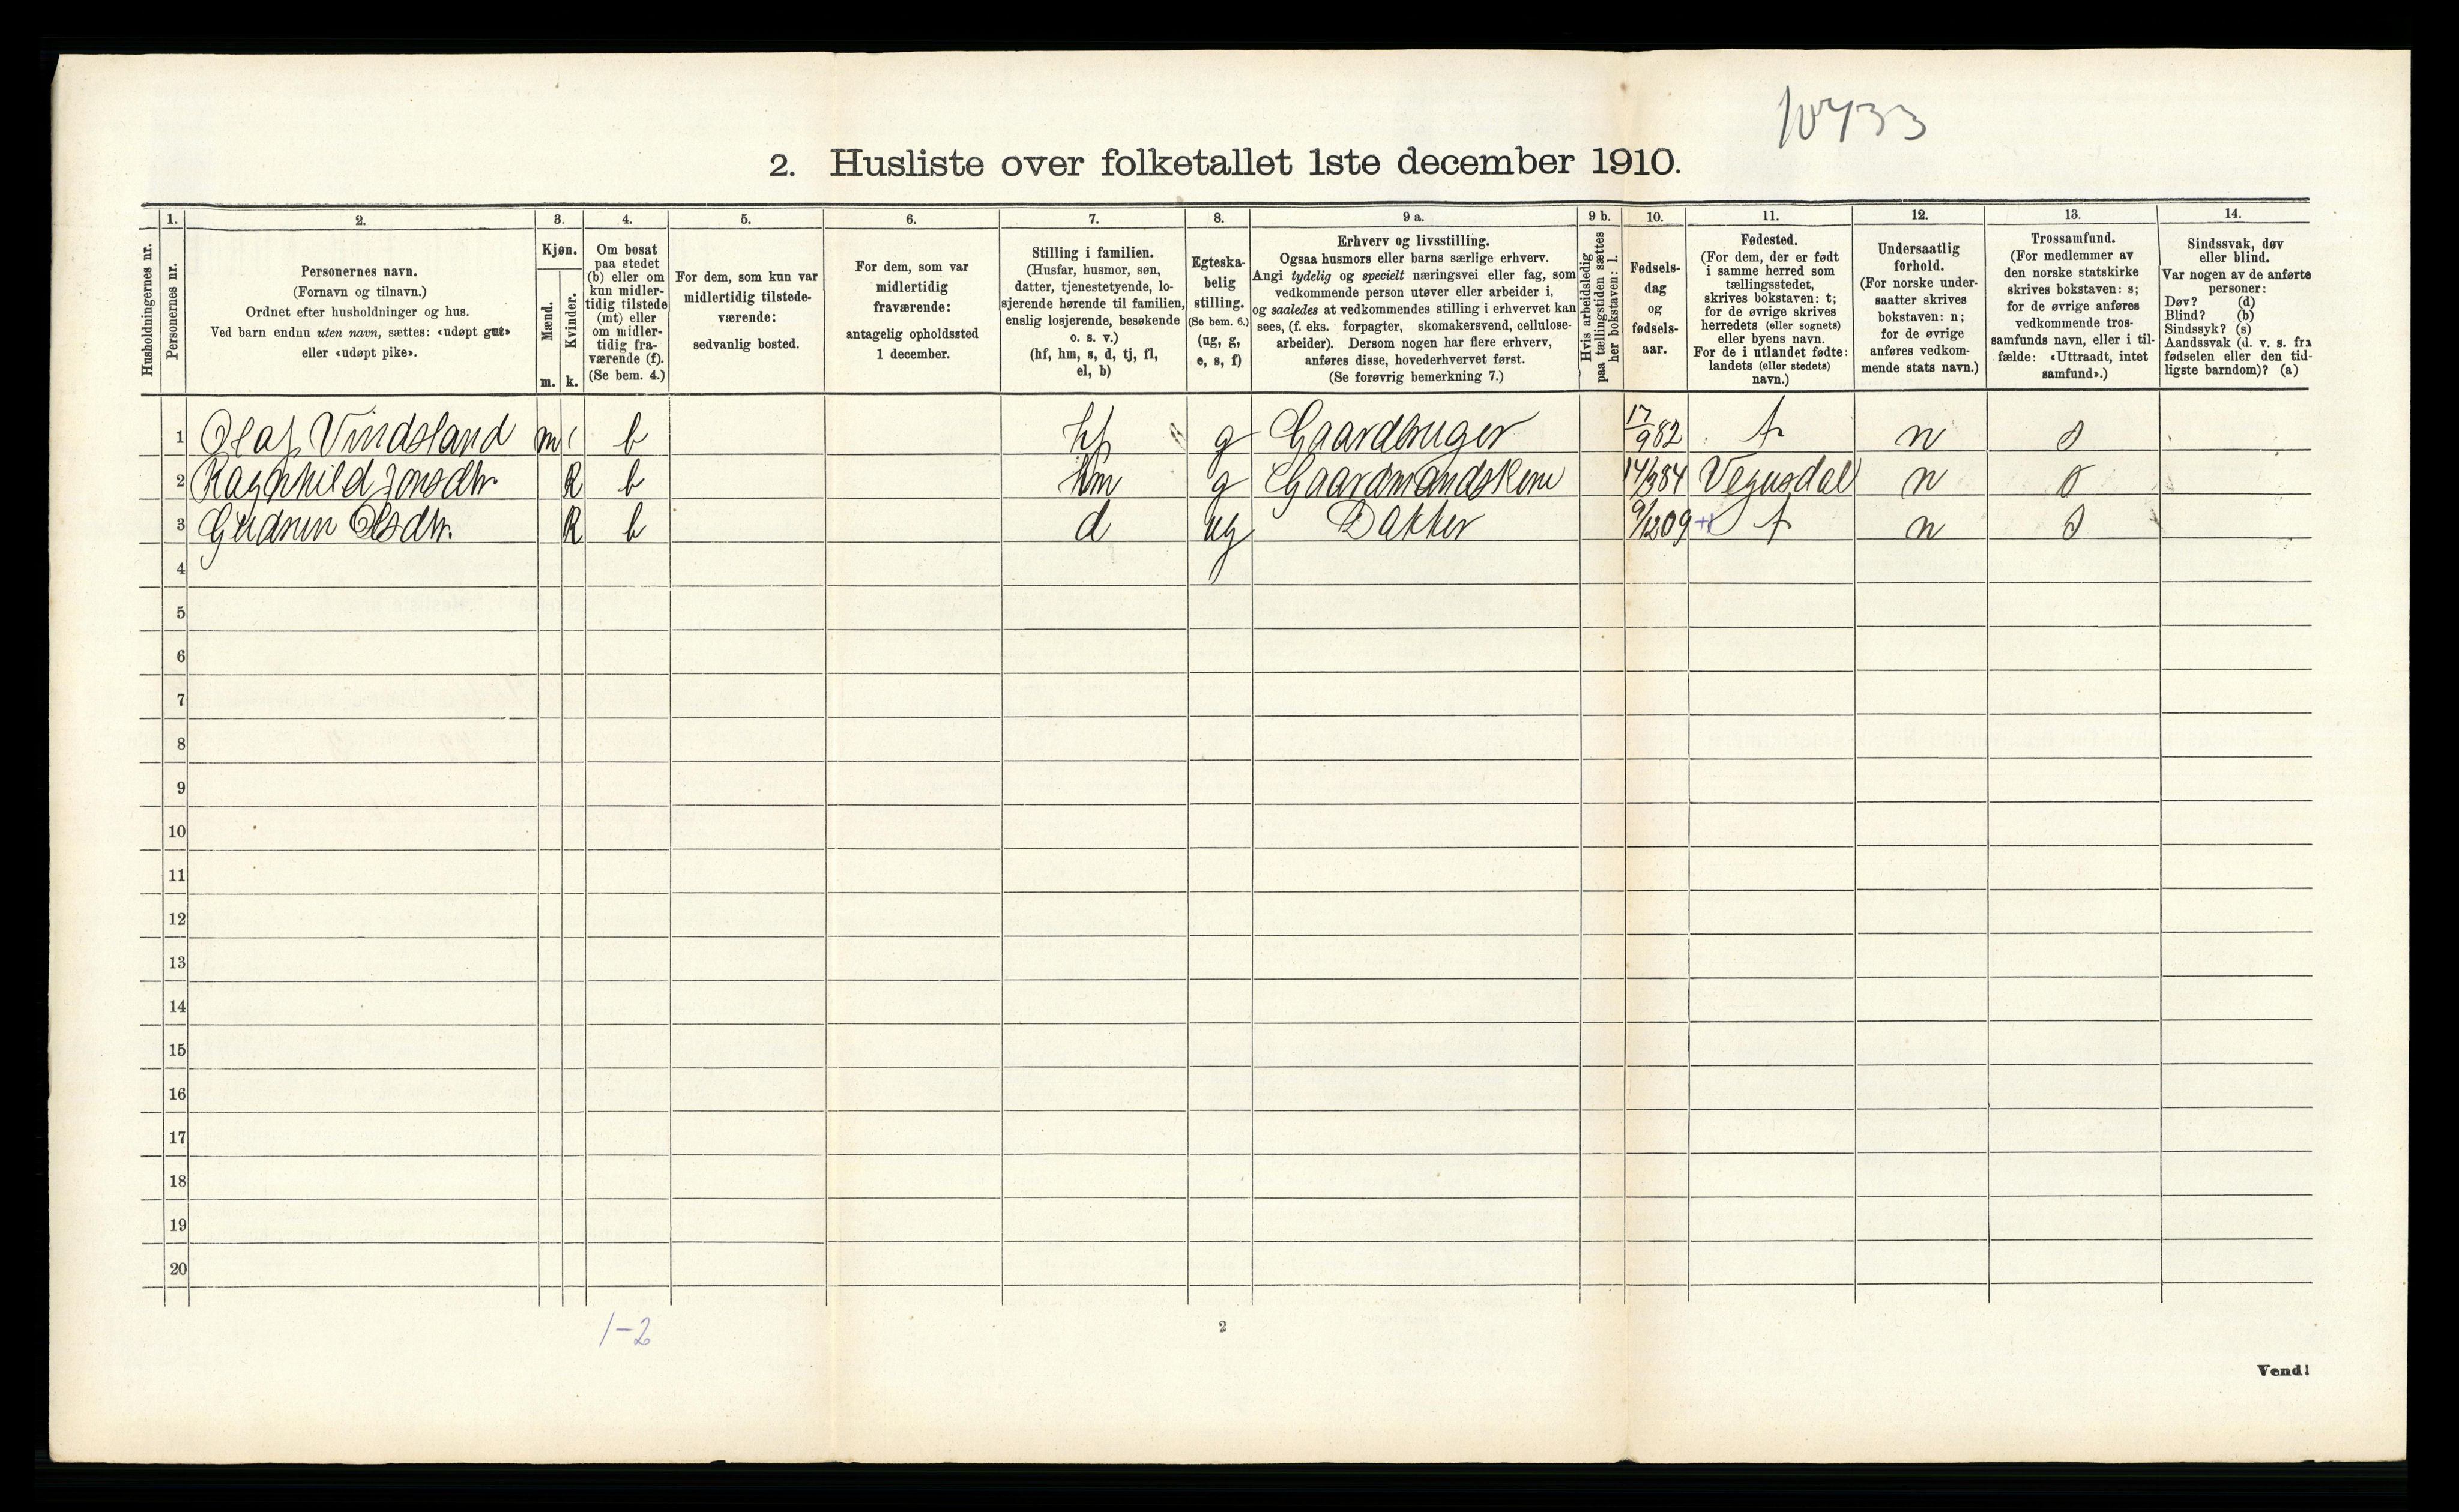 10433
2. Husliste over folketallet 1ste december 1910.
Husholdningernes nr.
1.
Personernes nr.
2.
Personernes navn.
(Fornavn og tilnavn.)
Ordnet efter husholdninger og hus.
Ved barn endnu uten navn, sættes: «udøpt gut»
eller «udøpt pike».
3.
Kjøn.
Mænd.
Kvinder.
m. k.
4.
Om bosat
paa stedet
(b) eller om
kun midler-
tidig tilstede
(mt) eller
om midler-
tidig fra-
værende (f).
(Se bem. 4.)
5.
For dem, som kun var
midlertidig tilstede-
værende:
sedvanlig bosted.
6.
For dem, som var
midlertidig
fraværende:
antagelig opholdssted
1 december.
7.
Stilling i familien.
(Husfar, husmor, søn,
datter, tjenestetyende, lo-
sjerende hørende til familien,
enslig losjerende, besøkende
o. s. v.)
(hf, hm, s, d, tj, fl,
el, b)
8.
Egteska-
belig
stilling.
(Se bem. 6.)
(ug, g,
e, s, f)
9 a.
Erhverv og livsstilling.
Ogsaa husmors eller barns særlige erhverv.
Angi tydelig og specielt næringsvei eller fag, som
vedkommende person utøver eller arbeider i,
og saaledes at vedkommendes stilling i erhvervet kan
sees, (f. eks. forpagter, skomakersvend, cellulose-
arbeider). Dersom nogen har flere erhverv,
anføres disse, hovederhvervet først.
(Se forøvrig bemerkning 7.)
9 b.
Hvis arbeidsledig
paa tællingstiden sættes
her bokstaven: l.
10.
Fødsels-
dag
og
fødsels-
aar.
11.
Fødested.
(For dem, der er født
i samme herred som
tællingsstedet,
skrives bokstaven: t;
for de øvrige skrives
herredets (eller sognets)
eller byens navn.
For de i utlandet fødte:
landets (eller stedets)
navn.)
12.
Undersaatlig
forhold.
(For norske under-
saatter skrives
bokstaven: n;
for de øvrige
anføres vedkom-
mende stats navn.)
13.
Trossamfund.
(For medlemmer av
den norske statskirke
skrives bokstaven: s;
for de øvrige anføres
vedkommende tros-
samfunds navn, eller i til-
fælde: «Uttraadt, intet
samfund».)
14.
Sindssvak, døv
eller blind.
Var nogen av de anførte
personer:
Døv? (d)
Blind? (b)
Sindssyk? (s)
Aandssvak (d. v. s. fra
fødselen eller den tid-
ligste barndom)? (a)
1 Olaf Vindsland m b hf g Gaardbruger 17/9 82 t n s
2 Ragnhild Jonsdtr. K b hm g Gaardmandskone 14/3 84 Vegusdal n s
3 Gudrun Olsdtr. K b d ug Datter 9/12 09 t n s
4
5
6
7
8
9
10
11
12
13
14
15
16
17
18
19
20
1-2
2
Vend!